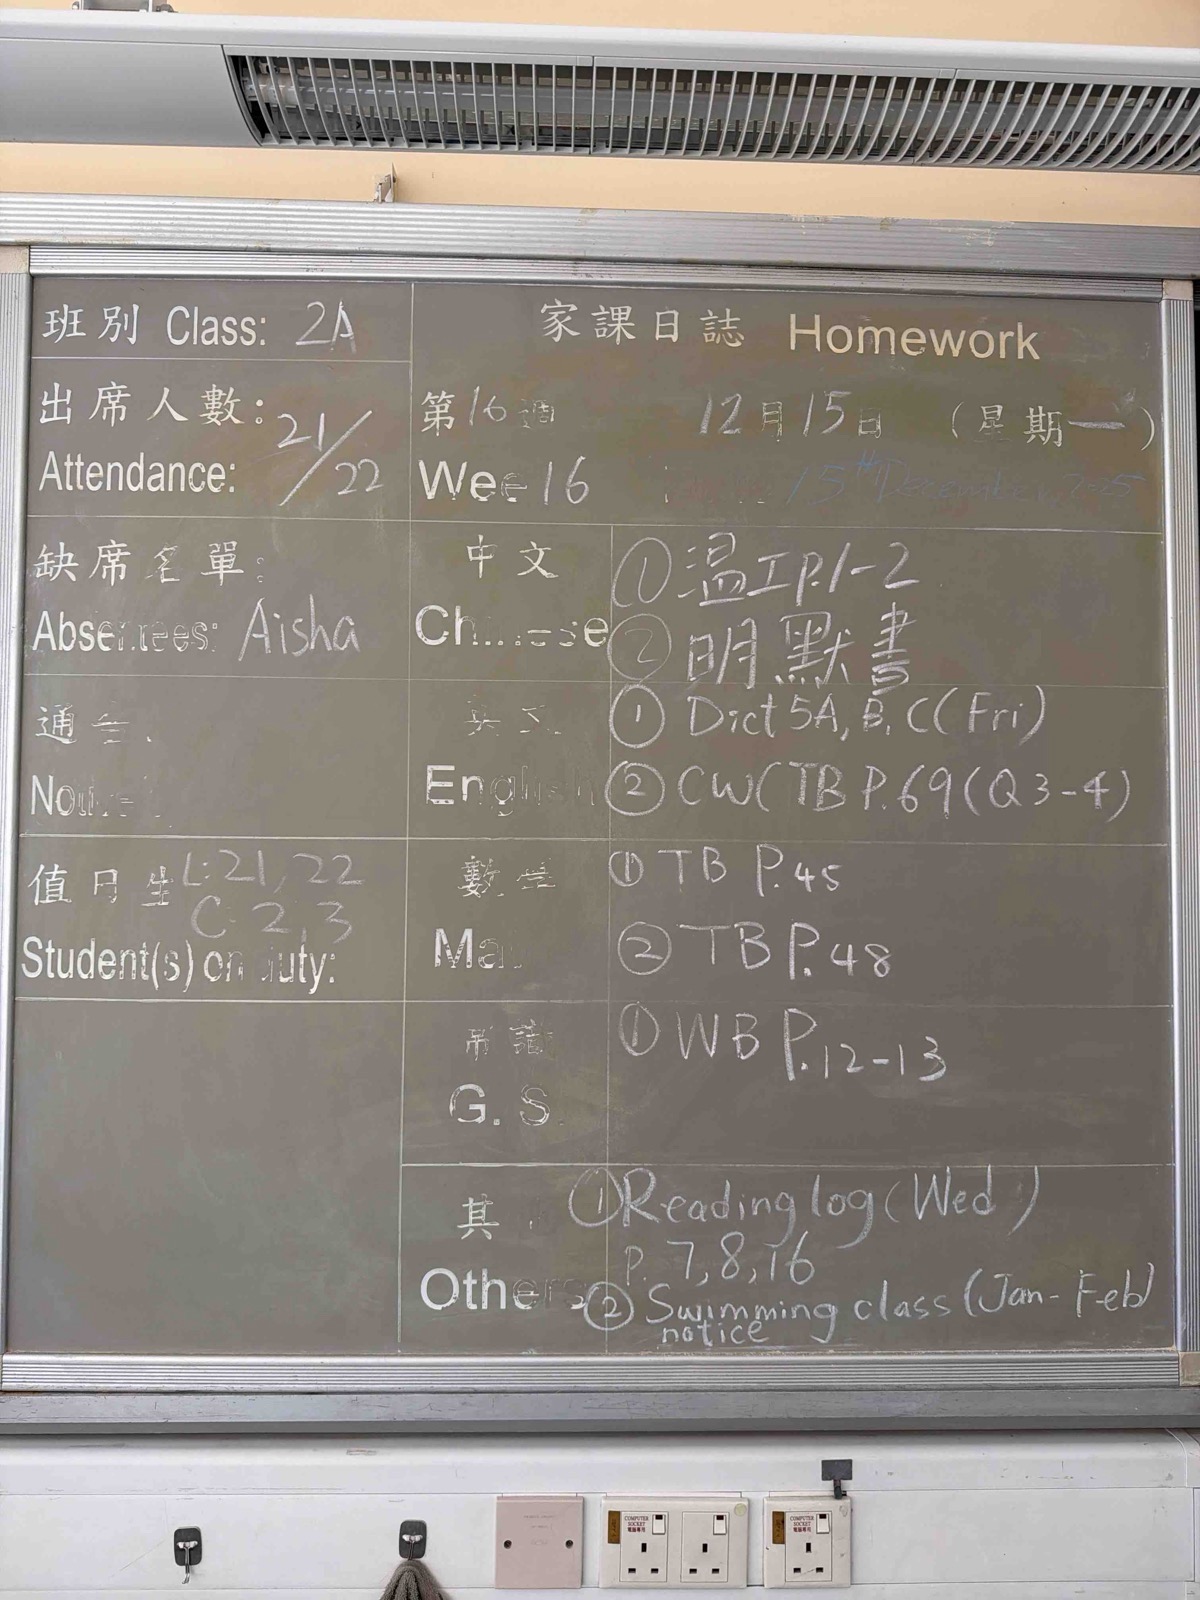 班別 Class: 2A
家課日誌 Homework
出席人數: 21/22
Attendance:
第16週 12月15日 (星期一)
Wee 16 15th December, 2025
缺席名單:
Absentees: Aisha
中文
Chinese
① 温工p.1-2
② 明默書
通告
英文
English
① Dict 5A, B, C (Fri)
② CW(TB P.69(Q3-4)
值日生 L: 21, 22
C: 2, 3
Student(s) on duty:
數學
Ma
① TB P.45
② TB P.48
常識
G. S.
① WB P.12-13
其
Others
① Reading log (Wed)
P. 7, 8, 16
② Swimming class (Jan-Feb)
notice
COMPUTER SOCKET
電腦專用
COMPUTER SOCKET
電腦專用